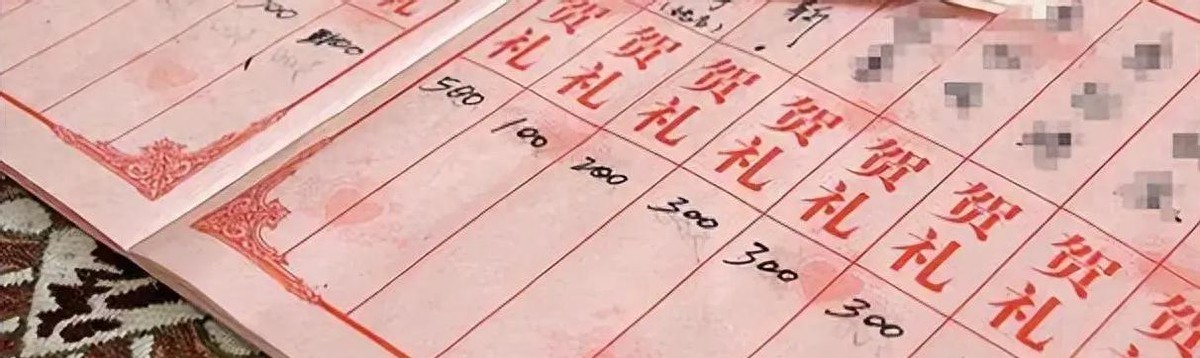 礼
贺礼 贺礼 贺礼 贺礼 贺礼 贺礼 贺礼 贺
500 100 200 300 300 300